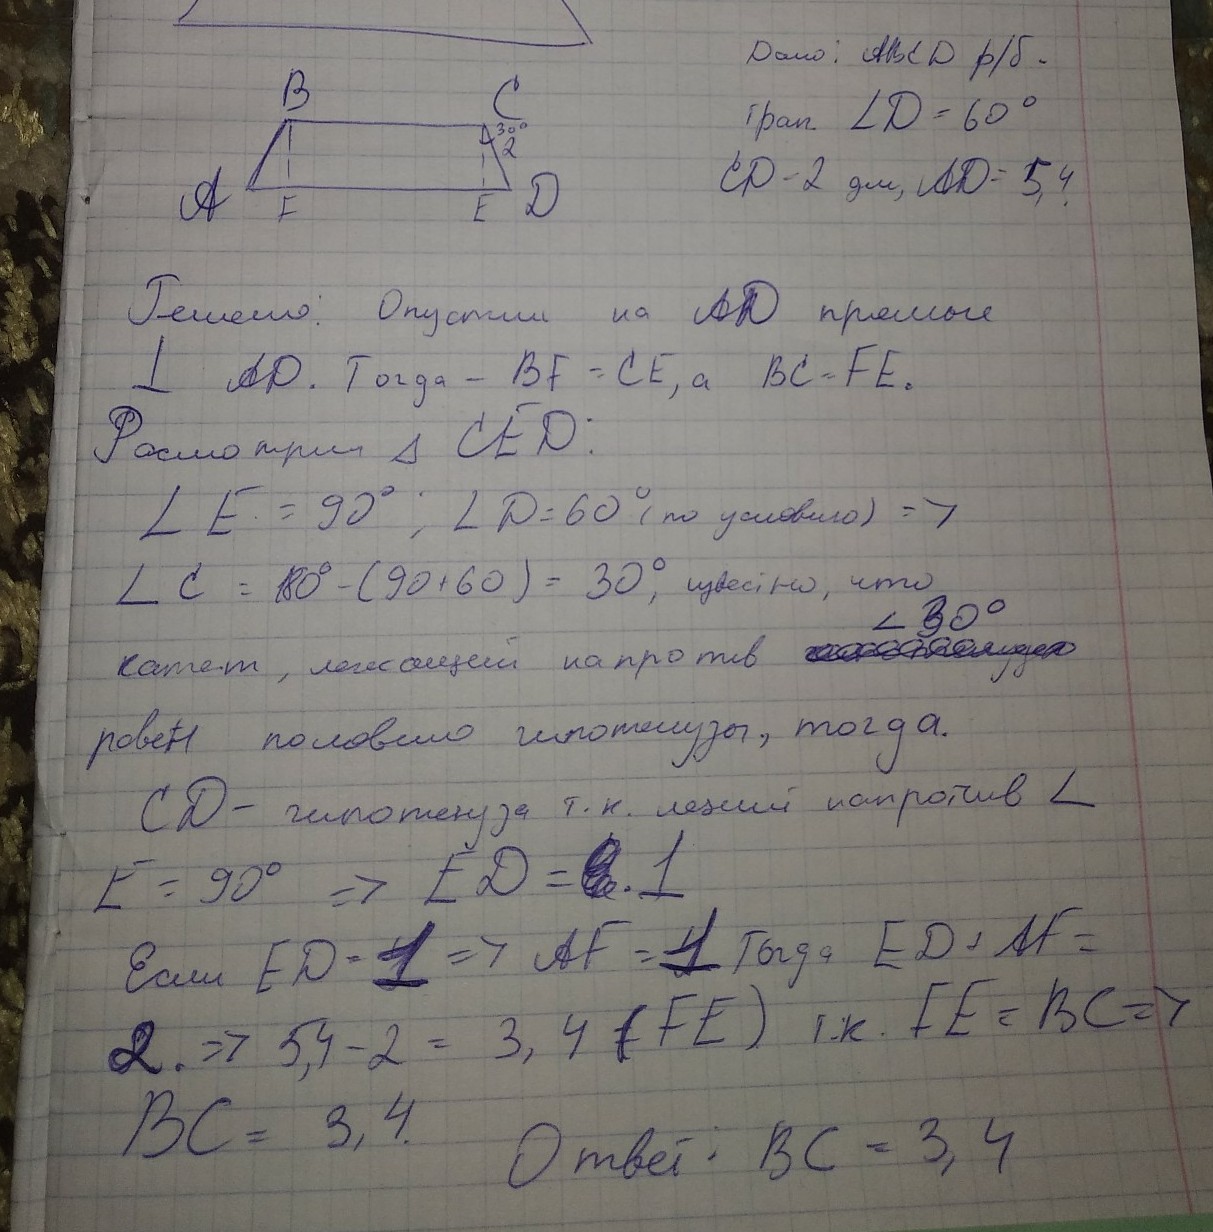 Дано: ABCD р/б.
трап. ∠D = 60°
CD - 2 дм, AD = 5,4
B
C
30°
2
A
F
E
D
Решено: Опустим на AD прямые
⊥ AD. Тогда - BF = CE, а BC = FE.
Расмотрим △ CED:
∠ E = 90° ; ∠D = 60° (по условию) =>
∠ C = 180° - (90 + 60) = 30°, известно, что
∠30°
катет, лежащий напротив
ровен половино гипотенузы, тогда.
CD - гипотенуза т.к. лежий напротив ∠
E = 90° => ED = 1
Если ED = 1 => AF = 1 Тогда ED + AF =
2. => 5,4 - 2 = 3,4 (FE) т.к. FE = BC =>
BC = 3,4.
Ответ: BC = 3,4